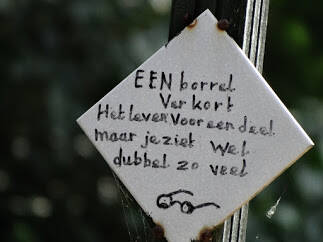 EEN borrel
Verkort
Het leven voor een deel
maar je ziet wel
dubbel zo veel